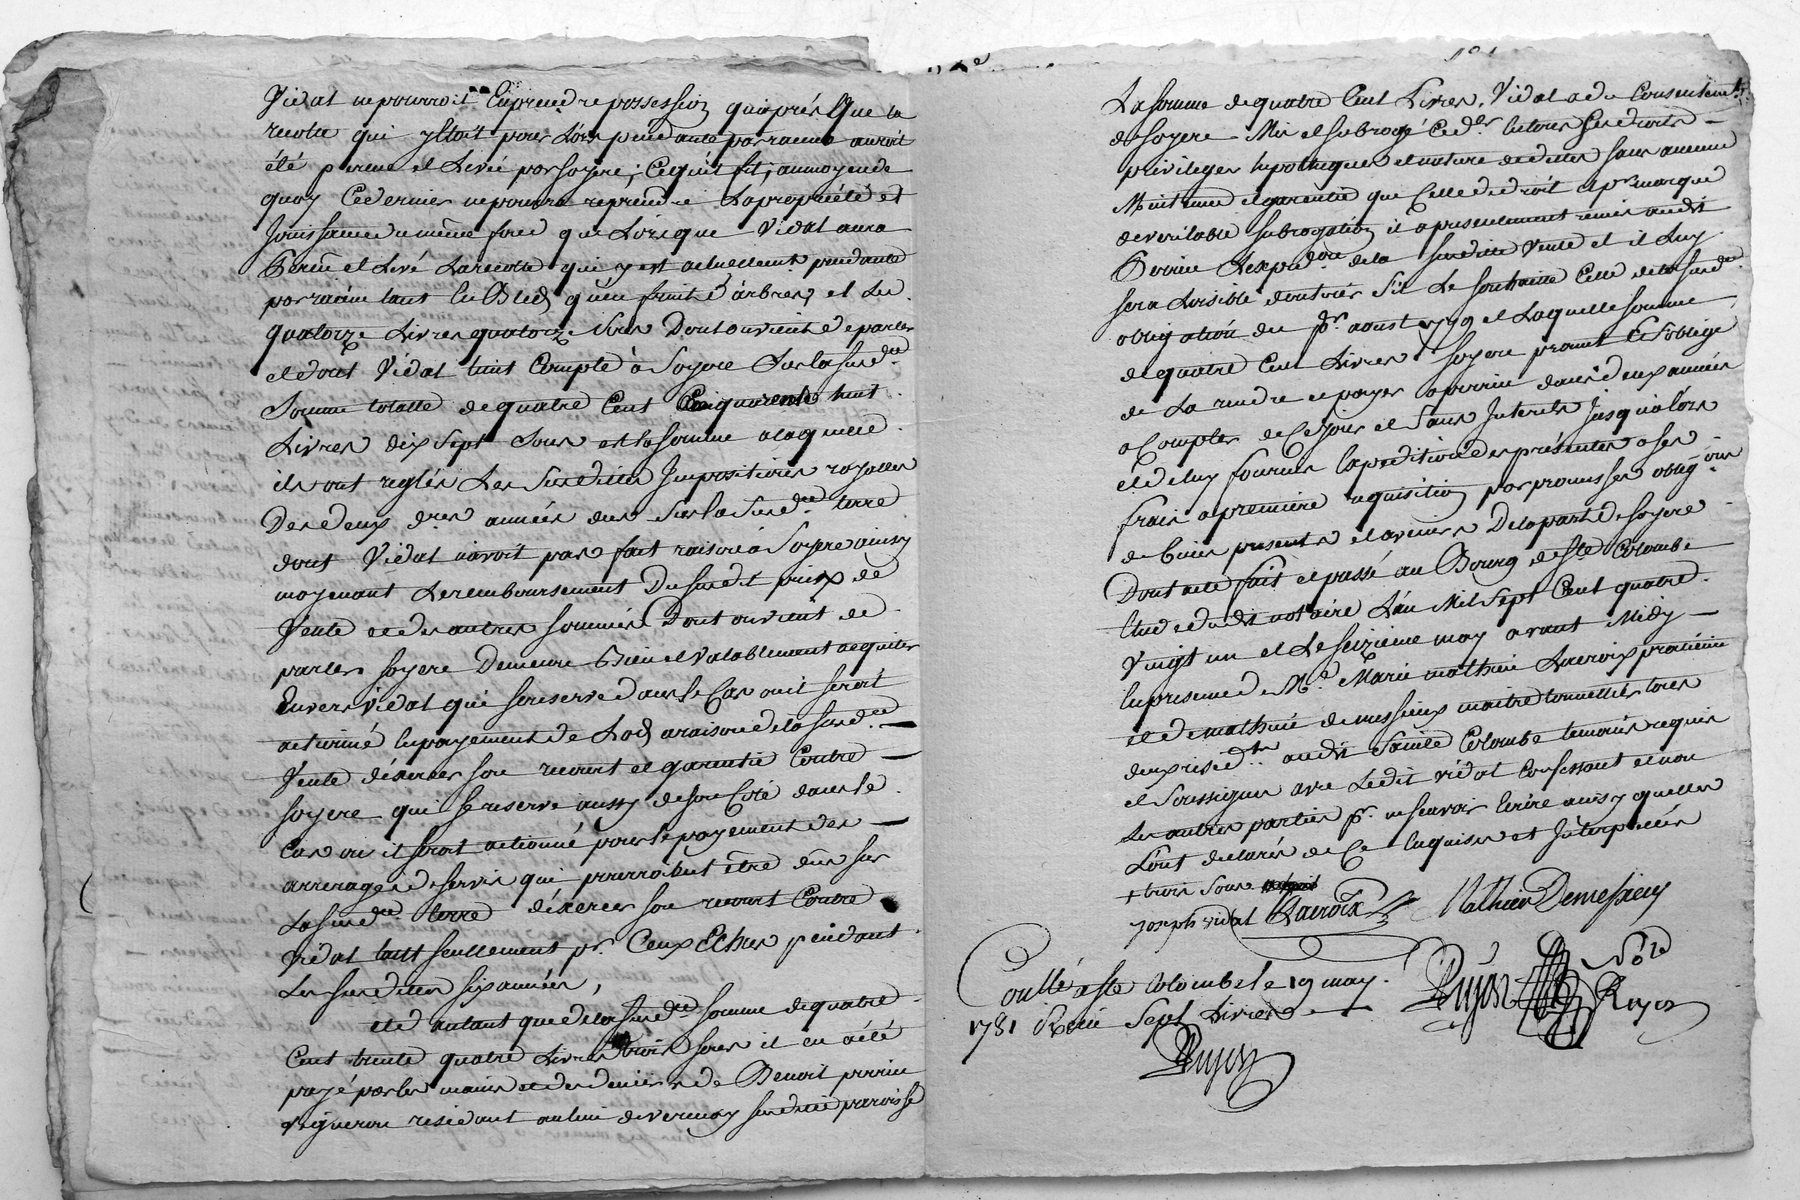 Vidat ne pourroit En prendre possession qu'aprés Que la
recolte qui y Etoit pour Lors pendante par racine auroit
été perçue et Levée par soyere; Ce qu'il fit; au moyen de
quoy Ce dernier ne pourra reprendre La propriété et
Jouissance du même fond que Lorsque Vidat aura
Percue et Levé La recolte qui y est actuellemt. pendante
par racine tant En Bled qu'en fruit d'arbres, et Les
quatorze Livres quatorze sous Dont on vient de parler
et dont Vidat tient Compte à Soyere Sur la susd.
Somme totalle de quatre Cent Cinquante huit
Livres dix Sept Sous est la somme a laquelle
ils ont reglés Les Susdittes Impositions royalles
Des deux dres années dues Sur la Susd. terre
dont Vidat n'avoit pas fait raison à Soyere ainsy
moyenant Le remboursement Du susdit prix de
Vente et des autres sommes Dont on vient de
parler soyere Demeure Bien et Valablement acquitté
Envers Vidat qui se reserve dans le Cas ou il seroit
actionné En payement de Lods a raison de la susd.
Vente d'éxercer son recourt et garantie Contre
soyere qui se reserve aussy de son Coté dans le
Cas ou il seroit actionné pour le payement des
arrerages de servis qui pourroient être dûs sur
La susd. terre d'éxercer son recourt Contre
Vidat tant seullement pr. Ceux Echus pendant
Les susdittes six années,
et d'autant que de la susd. somme de quatre
Cent trente quatre Livres trois sous il en a été
payé par les mains et des deniers de Benoit perrin
vigneron residant au lieu de vernay susditte paroisse
La somme de quatre Cent Livres, Vidat a du Consentemt.
de soyere Mis et subrogé Ce dr. En tous Ses droits
privileges hypotheques et nature de dettes sans aucune
Maintenue et garantie que Celle de droit et pr. marque
de veritable subrogation il a presentement remis audit
Perrin L'expedon. de la susditte Vente et il Luy
sera Loisible d'en tirer S'il Le souhaitte Celle de la susd.
obligation du pr. aoust 1779 et Laquelle somme
de quatre Cent Livres Soyere promet Et s'oblige
de La rendre et payer a perrin dans deux années
a Compter de Ce jour et Sans Interets Jusqu'alors
et de luy fournir Expedition des présentes a ses
frais a premiere requisition par promesses obligons
de biens presents et avenirs De la part de soyere
Dont acte fait et passé au Bourg de Ste Colombe
Etude dudit notaire L'an Mil Sept Cent quatre
Vingt un et Le seizieme may avant Midy
En presence de Me. Marie mathieu Lacroix praticien
et de mathieu demessieux maitre tonnellier tous
deux resid.ts audit Sainte Colombe temoins requis
et soussignes avec Ledit vidat Confessant et non
Les autres parties pr. ne scavoir Ecrire ainsy quelles
L'ont declarés de Ce Enquises et Interpellées
+ trois sous
joseph vidat Lacroix Mathieu Demessieux
Pujos Nore Royos
Conllé a Ste Colombe Le 19 may
1781 Recu Sept Livres
Pujos